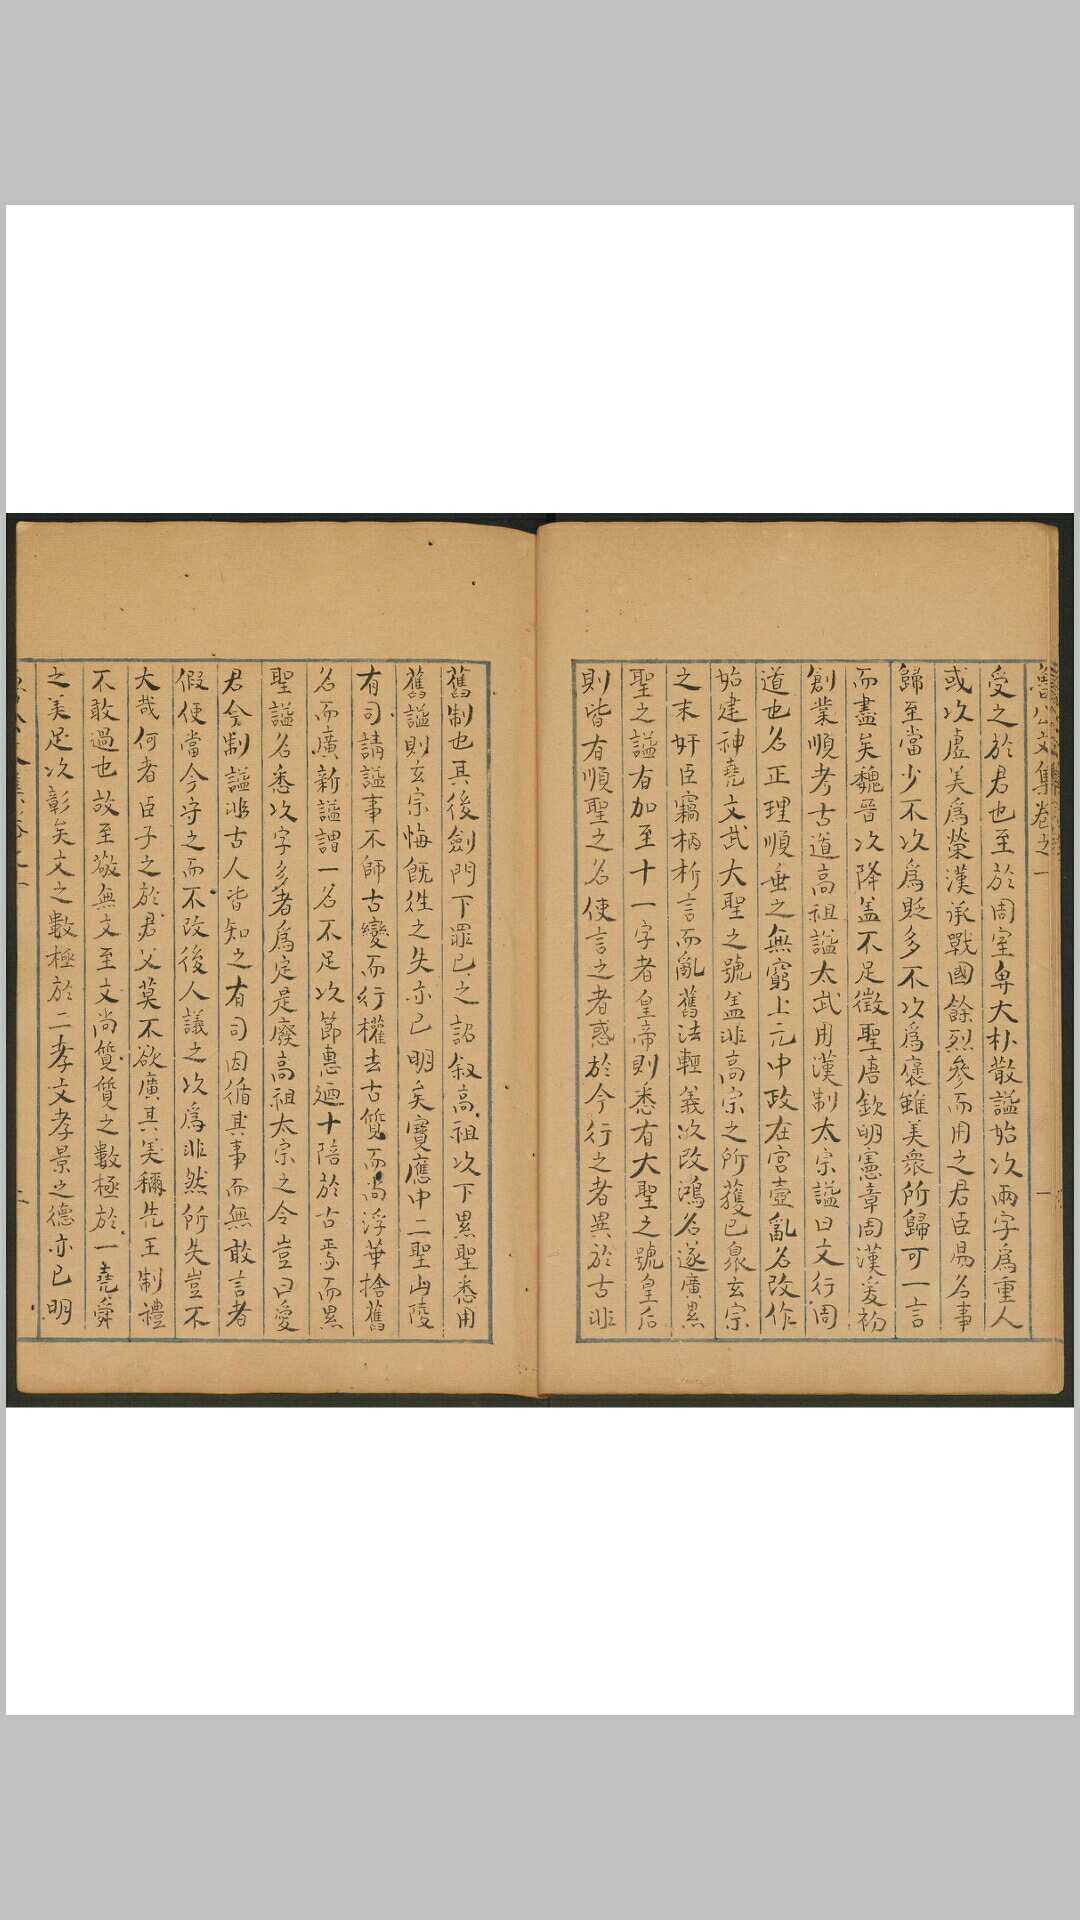 魯公文集卷之一
一
受之於君也至於周室卑大朴散諡始以兩字爲重人
或以虛美爲榮漢承戰國餘烈參而用之君臣易名事
歸至當少不以爲貶多不以爲褒雖美衆所歸可一言
而盡矣魏晉以降盖不足徵聖唐欽明憲章周漢爰初
創業順考古道高祖諡太武用漢制太宗諡曰文行周
道也名正理順垂之無窮上元中政在宮壼亂名改作
始建神堯文武大聖之號盖非高宗之所獲已泉玄宗
之末奸臣竊柄析言而亂舊法輕義以改鴻名遂廣累
聖之諡有加至十一字者皇帝則悉有大聖之號皇后
則皆有順聖之名使言之者惑於今行之者異於古非
舊制也其後劍門下罪已之詔叙高祖以下累聖悉用
舊諡則玄宗悔旣徃之失亦已明矣寶應中二聖山陵
有司請諡事不師古變而行權去古質而尚浮華捨舊
名而廣新諡謂一名不足以節惠廼十陪於古焉而累
聖諡名悉以字多者爲定是廢高祖太宗之令豈曰愛
君今制諡非古人皆知之有司因循其事而無敢言者
假使當今守之而不改後人議之以爲非然所失豈不
大哉何者臣子之於君父莫不欲廣其美稱先王制禮
不敢過也故至敬無文至文尚質質之數極於一堯舜
之美足以彰矣文之數極於二孝文孝景之德亦已明